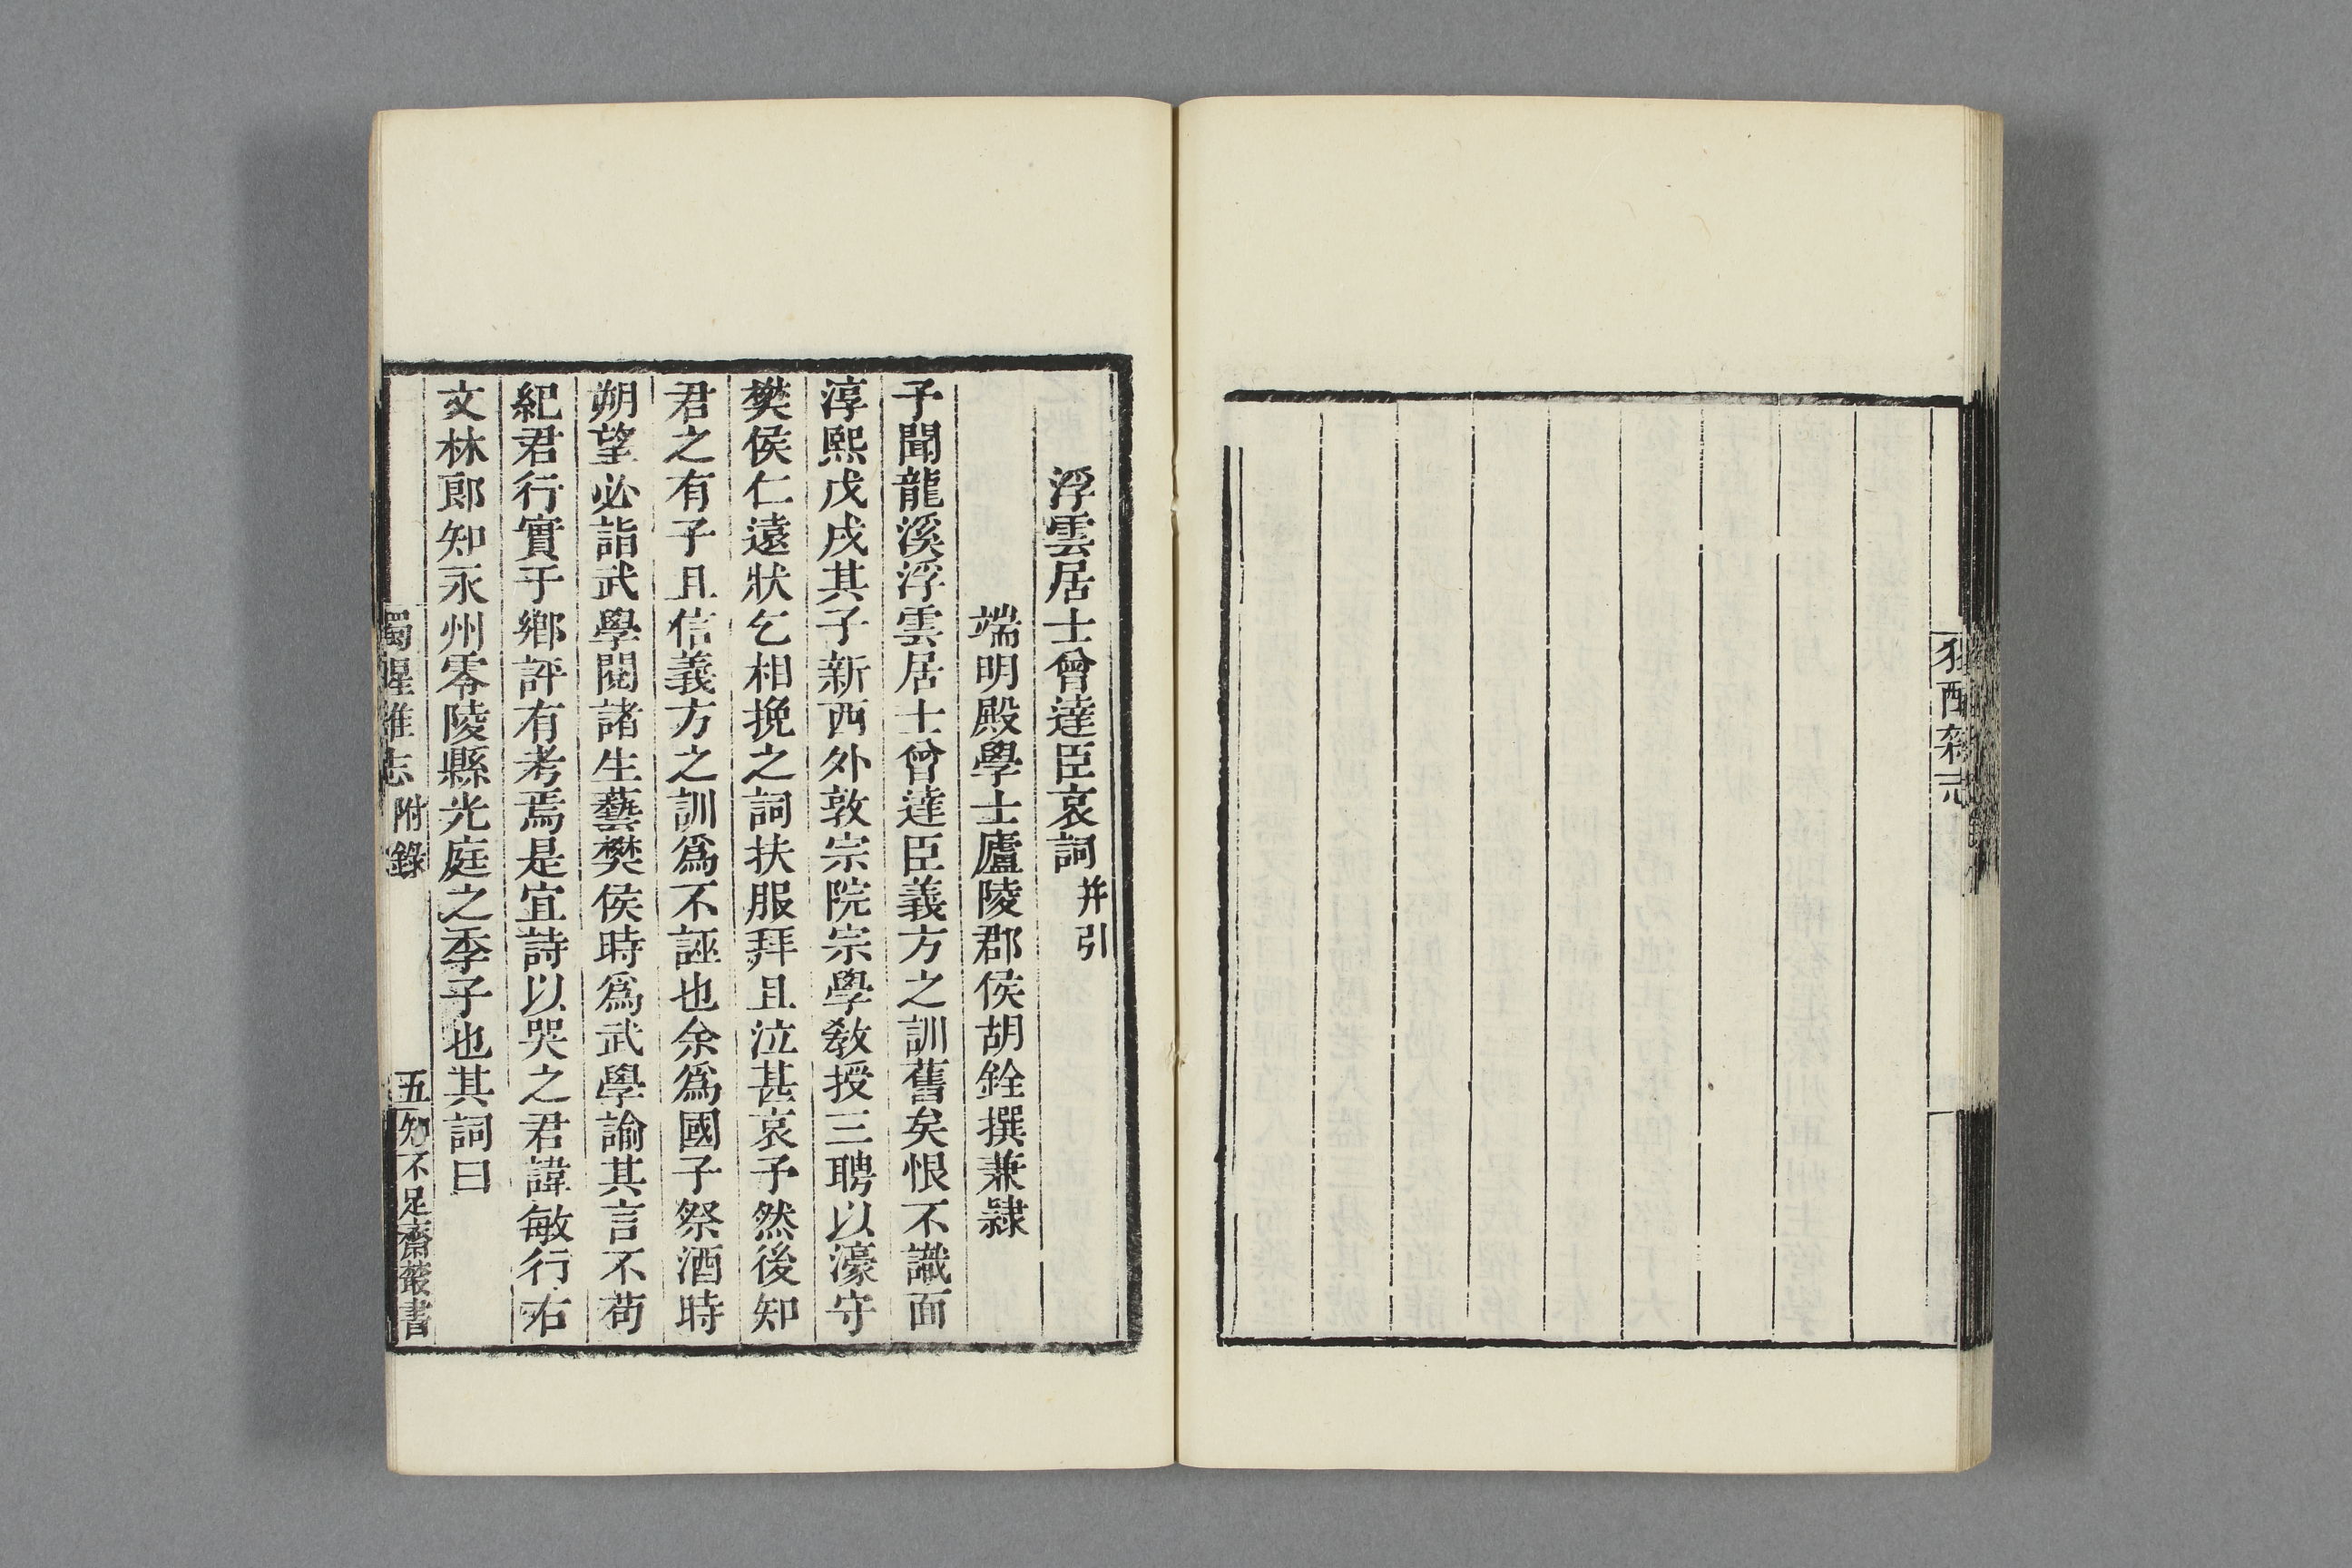 浮雲居士曾達臣哀詞并引
端明殿學士廬陵郡侯胡銓撰兼隷
予聞龍溪浮雲居士曾達臣義方之訓舊矣恨不識面
淳熙戊戌其子新西外敦宗院宗學敎授三聘以濠守
樊侯仁遠狀乞相挽之詞扶服拜且泣甚哀予然後知
君之有子且信義方之訓爲不誣也余爲國子祭酒時
朔望必詣武學閱諸生藝樊侯時爲武學諭其言不苟
紀君行實于鄉評有考焉是宜詩以哭之君諱敏行右
文林郎知永州零陵縣光庭之季子也其詞曰
獨醒雜志附錄
五
知不足齋叢書